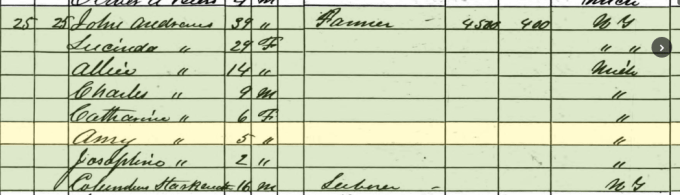 25 25 John Andrews 39 " Farmer - 4500 400 N Y
Lucinda " 29 F " "
Allice " 14 " Mich
Charles " 9 m "
Catharine " 6 F "
Amy " 5 " "
Josephine " 2 " "
Columbus 16 m Laborer - N Y